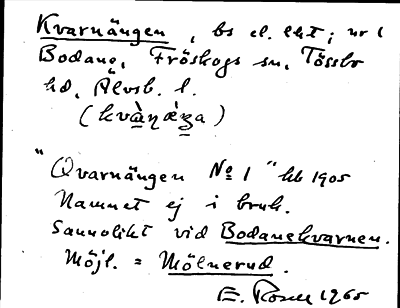 Kvarnängen, bs el. lht; nr 1
Bodane, Fröskogs sn, Tössbo
hd, Älvsb. l.
"Qvarnängen No 1" hk 1905
Namnet ej i bruk.
Sannolikt vid Bodanekvarnen.
Möjl. = Mölnerud.
E. Rosén 1965